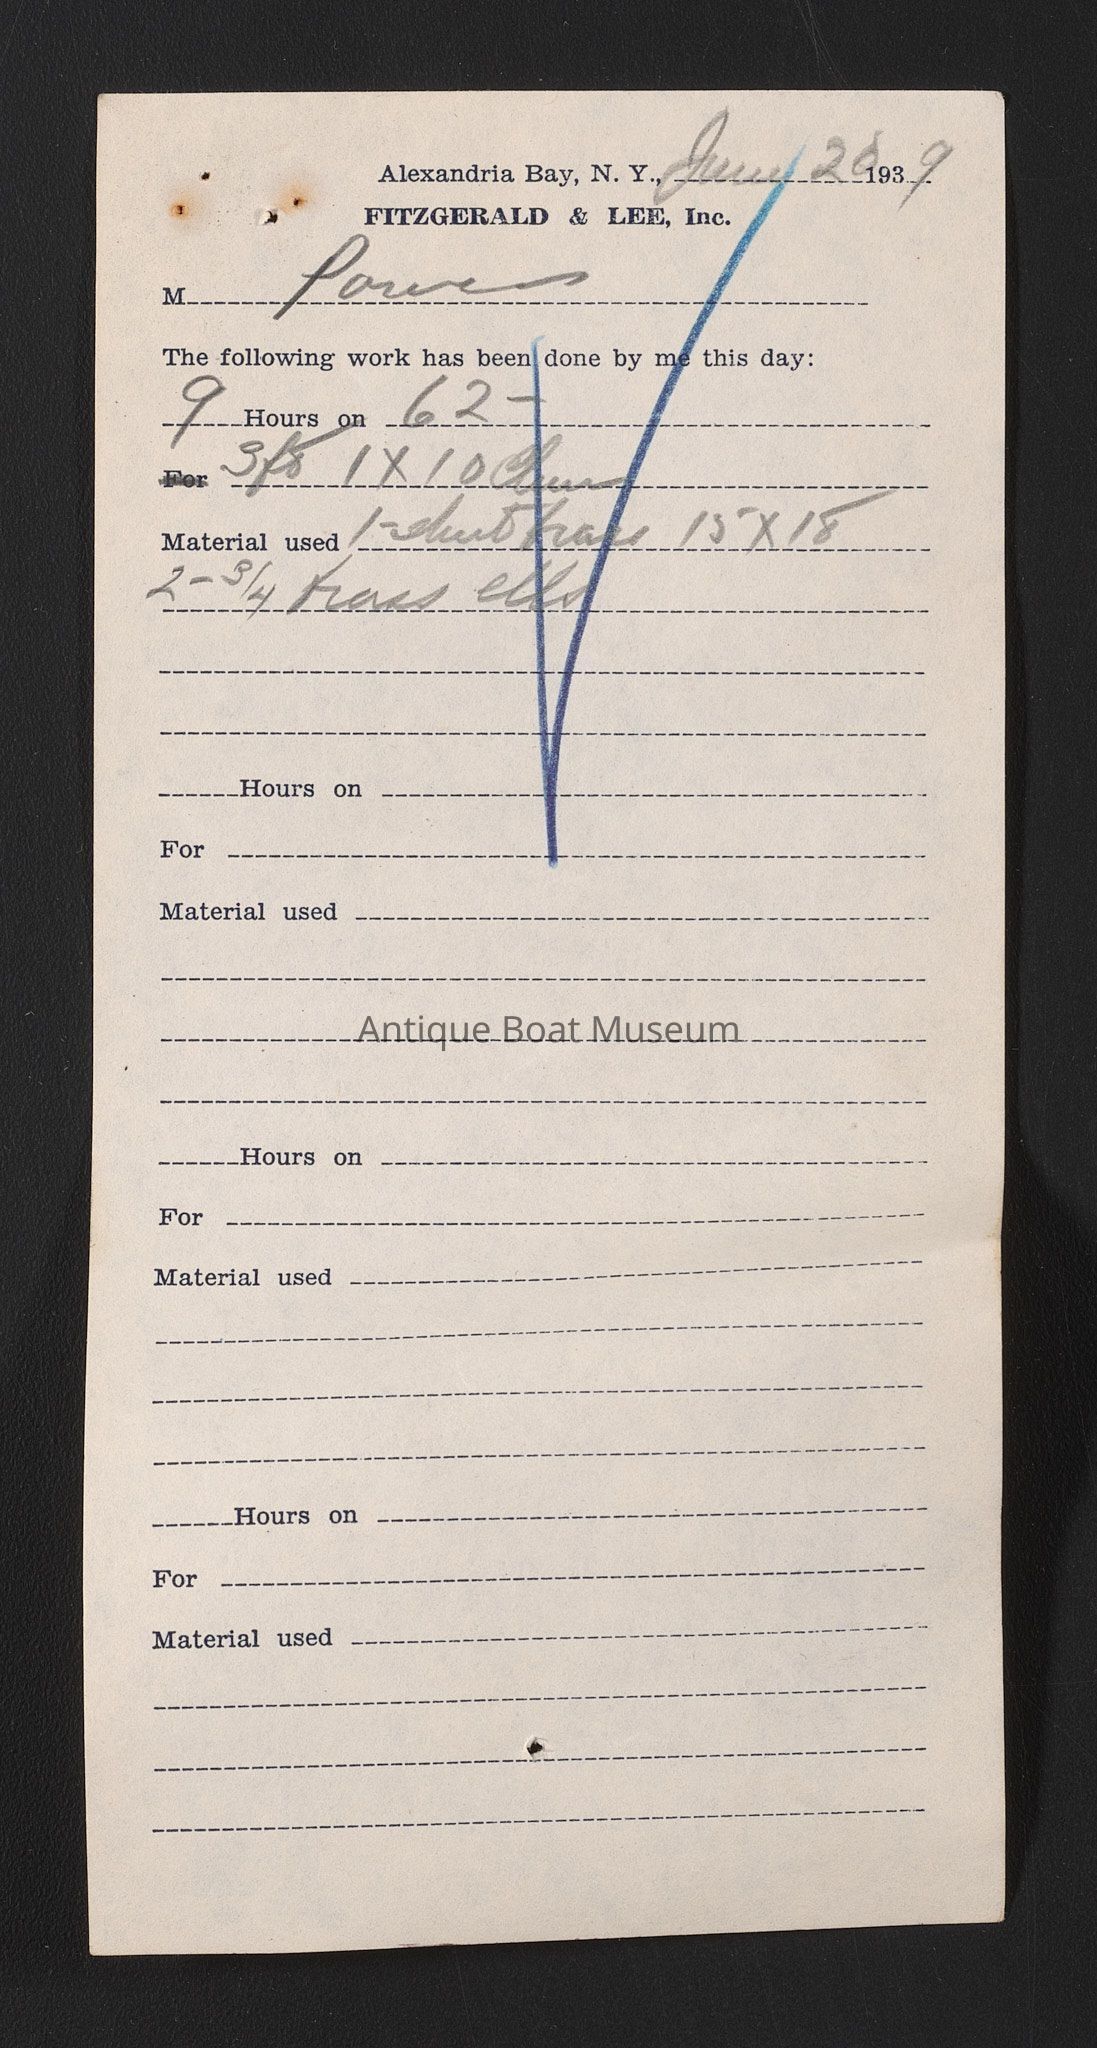 Alexandria Bay, N. Y., June 26 1939
FITZGERALD & LEE, Inc.
M Powers
The following work has been done by me this day:
9 Hours on 62-
For 3 ft 1 X 10
Material used 1- sheet brass 15 X 18
2 - 3/4 brass ells
Hours on
For
Material used
Antique Boat Museum
Hours on
For
Material used
Hours on
For
Material used